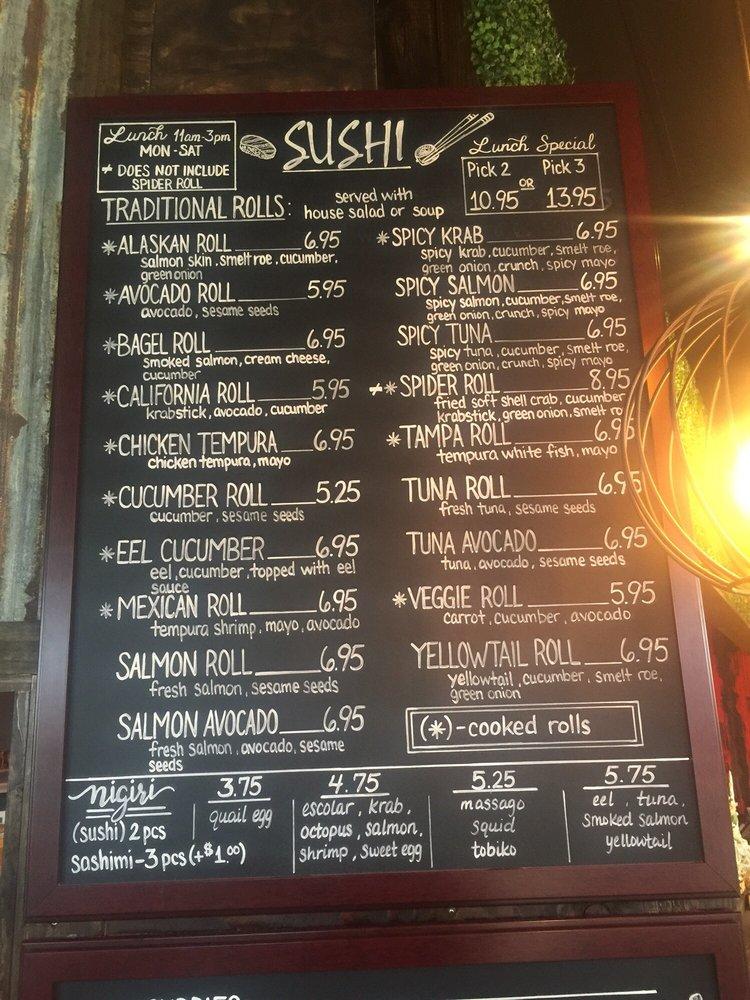 Lunch 11am-3pm
MON-SAT
≠ DOES NOT INCLUDE
SPIDER ROLL
SUSHI
Lunch Special
Pick 2 OR Pick 3
10.95 13.95
TRADITIONAL ROLLS: served with
house salad or soup
*ALASKAN ROLL 6.95
salmon skin, smelt roe, cucumber,
green onion
*AVOCADO ROLL 5.95
avocado, sesame seeds
*BAGEL ROLL 6.95
smoked salmon, cream cheese,
cucumber
*CALIFORNIA ROLL 5.95
krabstick, avocado, cucumber
*CHICKEN TEMPURA 6.95
chicken tempura, mayo
*CUCUMBER ROLL 5.25
cucumber, sesame seeds
*EEL CUCUMBER 6.95
eel, cucumber, topped with eel
sauce
*MEXICAN ROLL 6.95
tempura shrimp, mayo, avocado
SALMON ROLL 6.95
fresh salmon, sesame seeds
SALMON AVOCADO 6.95
fresh salmon, avocado, sesame
seeds
*SPICY KRAB 6.95
spicy krab, cucumber, smelt roe,
green onion, crunch, spicy mayo
SPICY SALMON 6.95
spicy salmon, cucumber, smelt roe,
green onion, crunch, spicy mayo
SPICY TUNA 6.95
spicy tuna, cucumber, smelt roe,
green onion, crunch, spicy mayo
≠*SPIDER ROLL 8.95
fried soft shell crab, cucumber
krabstick, green onion, smelt ro
*TAMPA ROLL 6.95
tempura white fish, mayo
TUNA ROLL 6.95
fresh tuna, sesame seeds
TUNA AVOCADO 6.95
tuna, avocado, sesame seeds
*VEGGIE ROLL 5.95
carrot, cucumber, avocado
YELLOWTAIL ROLL 6.95
yellowtail, cucumber, smelt roe,
green onion
(*)-cooked rolls
nigiri
(sushi) 2 pcs
sashimi-3 pcs (+$1.00)
3.75
quail egg
4.75
escolar, krab,
octopus, salmon,
shrimp, sweet egg
5.25
massago
squid
tobiko
5.75
eel, tuna,
smoked salmon
yellowtail